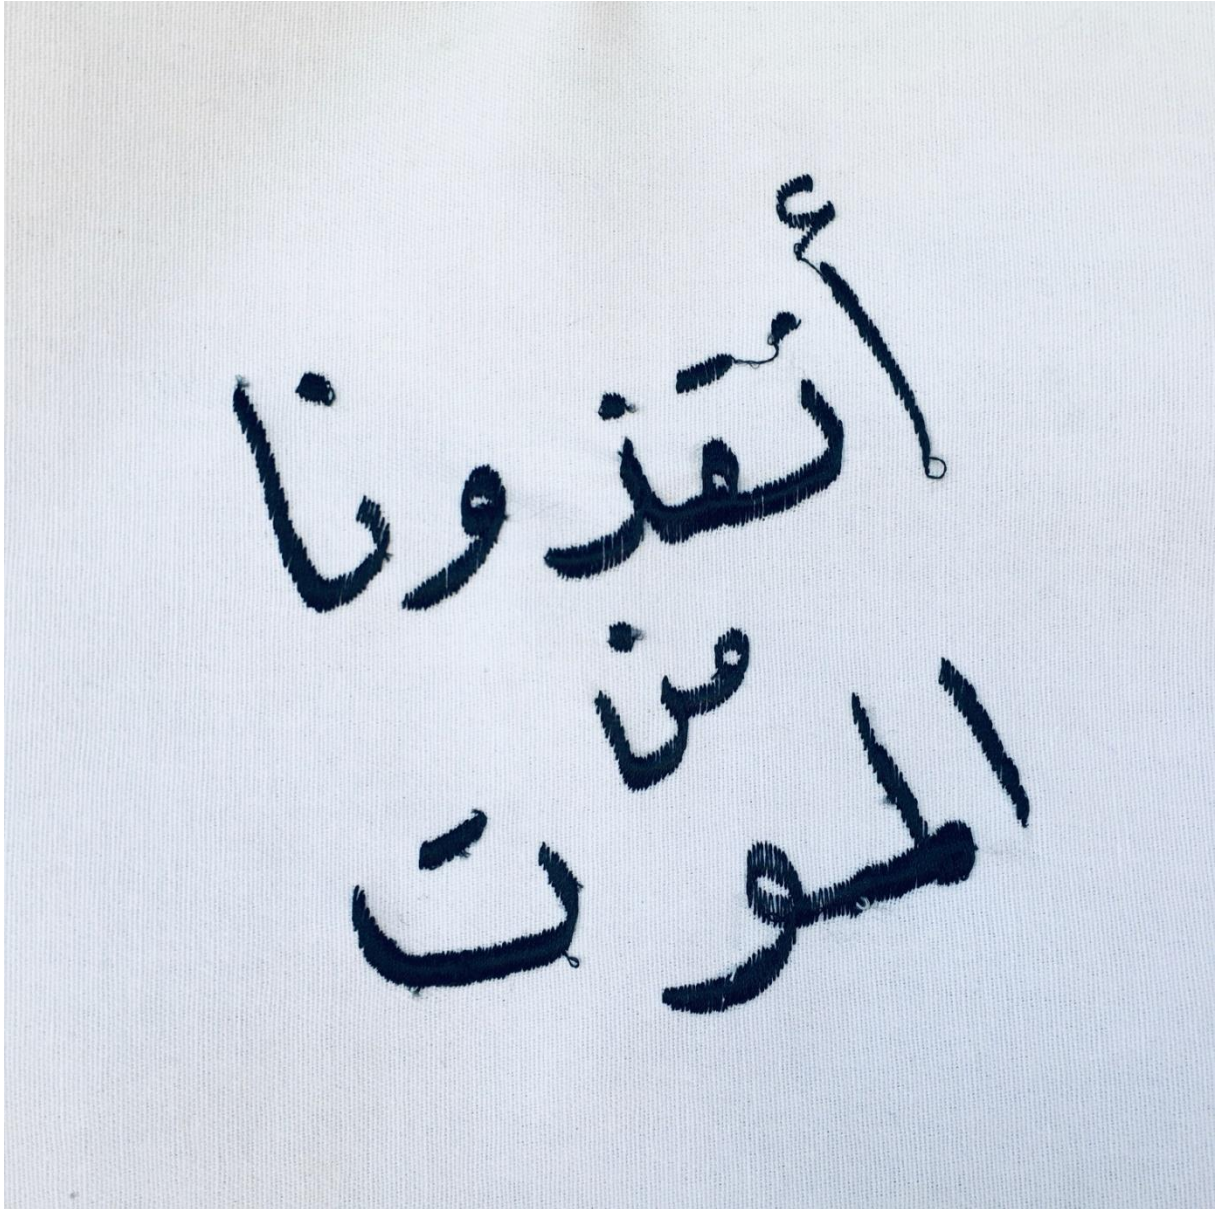 أنقذونا
من
الموت